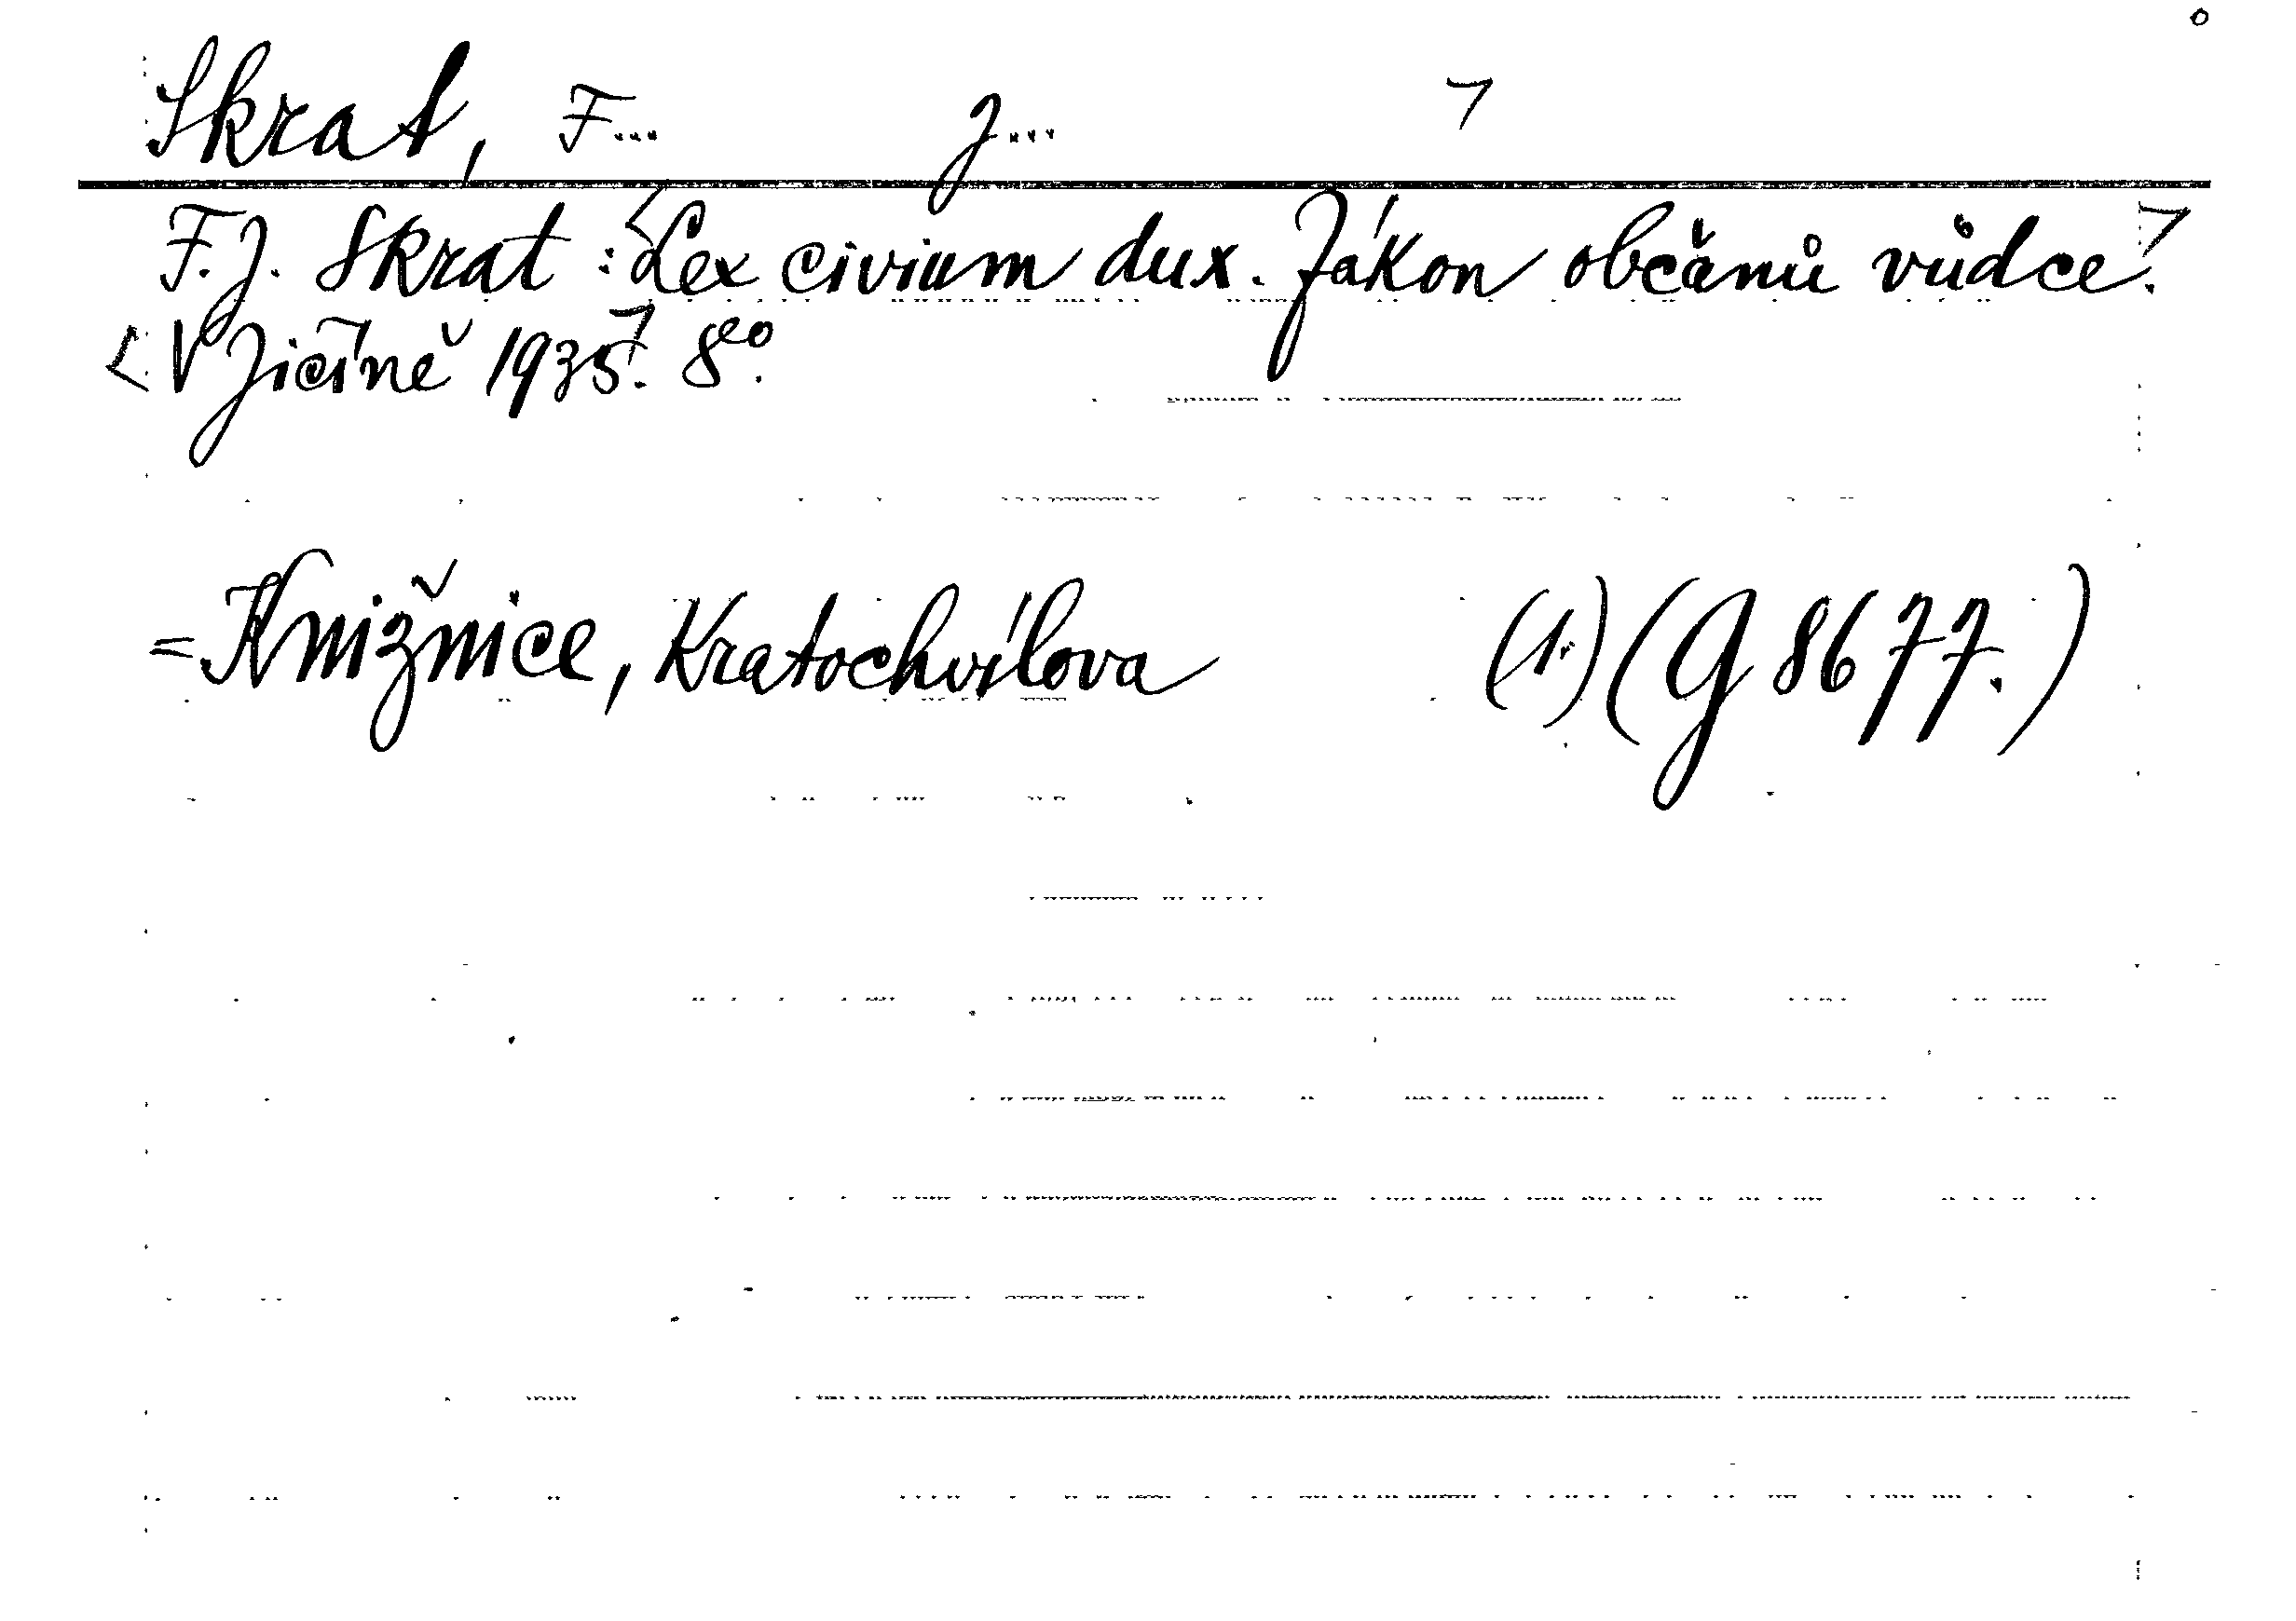 Skrat, F... J... ⌝
F. J. Skrat : <Lex civium dux. Zákon občanů vůdce.⌝
< V Jičíně 1935.⌝ 8°.
= Knižnice, Kratochvílova (1.) (G 8677.)